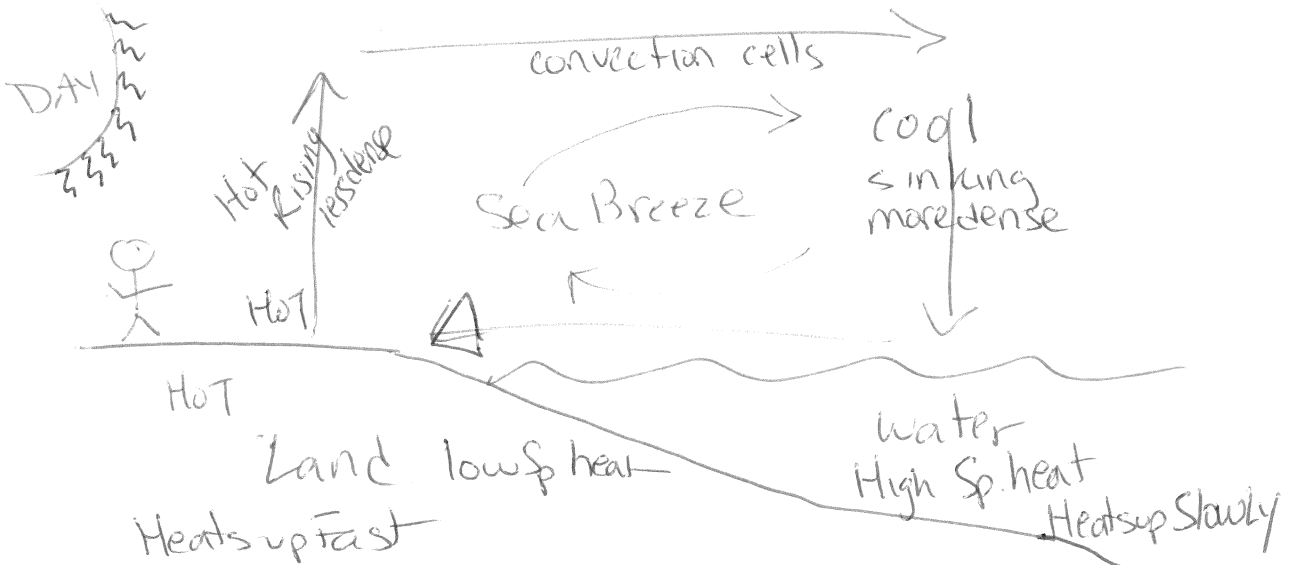 DAY
convection cells
Hot
Rising
less dense
cool
sinking
more dense
Sea Breeze
HOT
HOT
Land low Sp heat
Heats up Fast
water
High Sp. heat
Heats up Slowly